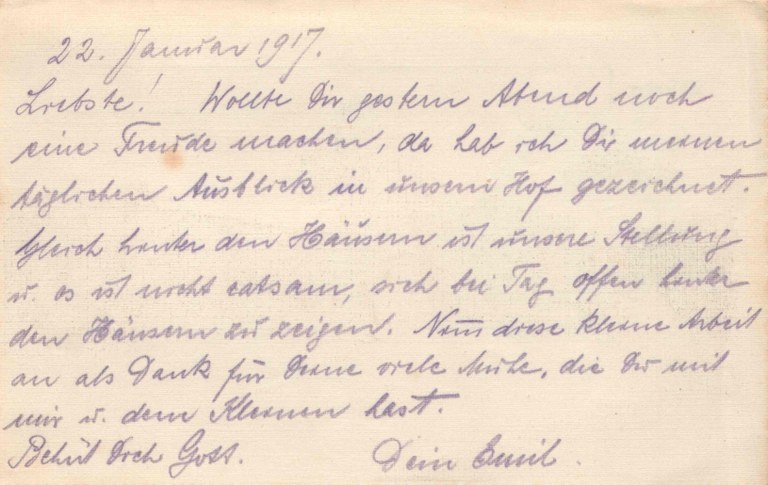 22. Januar 1917.
Liebste! Wollte Dir gestern Abend noch
eine Freude machen, da hab ich Dir meinen
täglichen Ausblick in unsern Hof gezeichnet.
Gleich hinter den Häusern ist unsere Stellung
u. es ist nicht ratsam, sich bei Tag offen hinter
den Häusern zu zeigen. Nimm diese kleine Arbeit
an als Dank für Deine viele Mühe, die Du mit
mir u. dem Kleinen hast.
Behüt Dich Gott. Dein Emil.